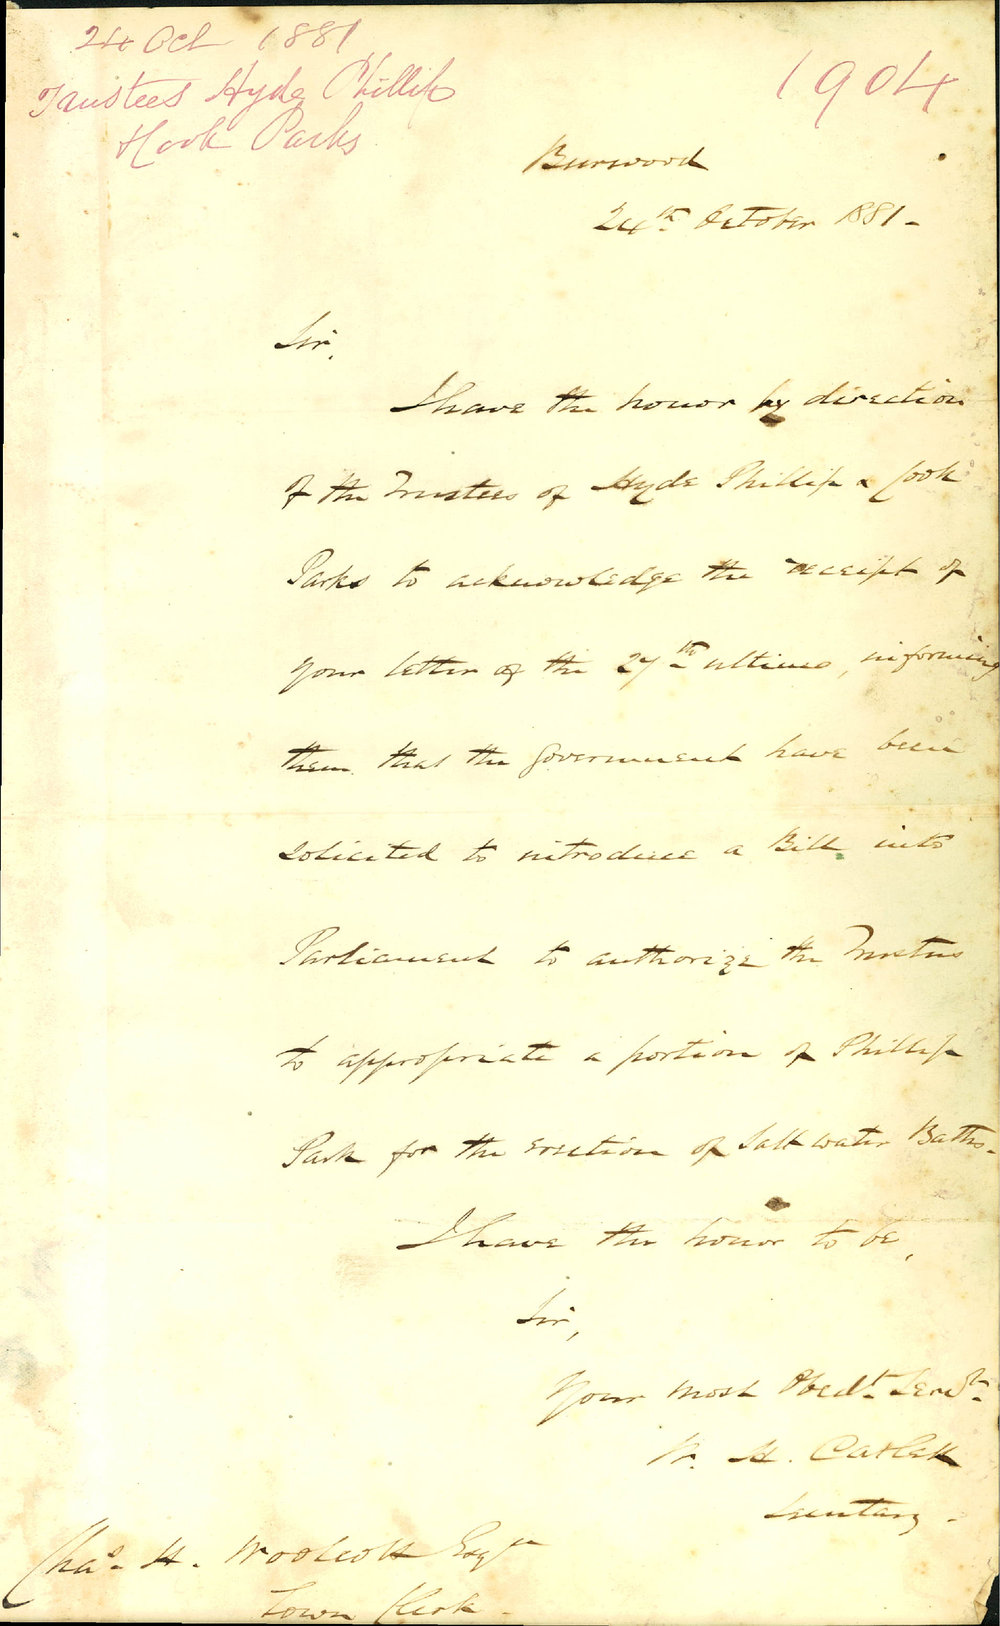 24 Oct 1881
Trustees Hyde Phillip
Hook Parks
1904
Burwood
24th October 1881 -
Sir,
I have the honor by direction
of the Trustees of Hyde Phillip & Cook
Parks to acknowledge the receipt of
your letter of the 27th ultimo, informing
them that the Government have been
solicited to introduce a Bill into
Parliament to authorize the Trustees
to appropriate a portion of Phillip
Park for the erection of Salt water Baths -
I have the honor to be,
Sir,
Your most Obedt. Servt.
W. H. Catlett
Secretary -
Chas. H. Woolcott Esqre
Town Clerk -